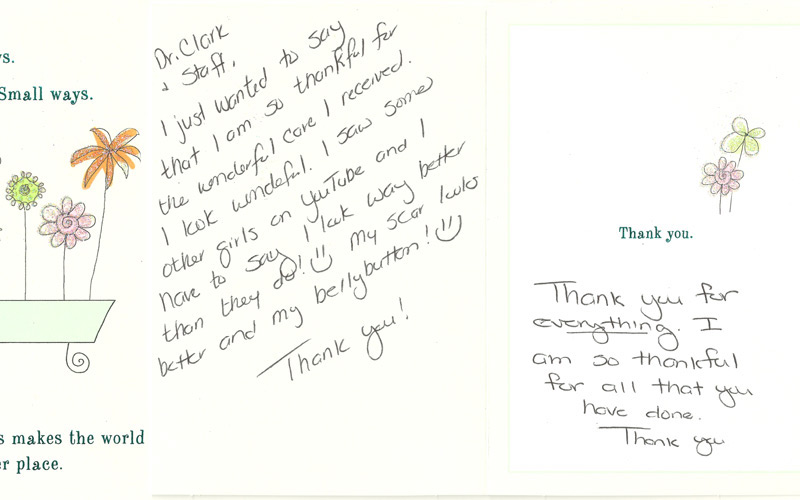 s.
Small ways.
s makes the world
r place.
Dr. Clark
+ Staff,
I just wanted to say
that I am so thankful for
the wonderful care I received.
I look wondeful. I saw some
other girls on YouTube and I
have to say I look way better
than they do! My scar looks
better and my bellybutton!
Thank you!
Thank you.
Thank you for
everything. I
am so thankful
for all that you
have done.
Thank you